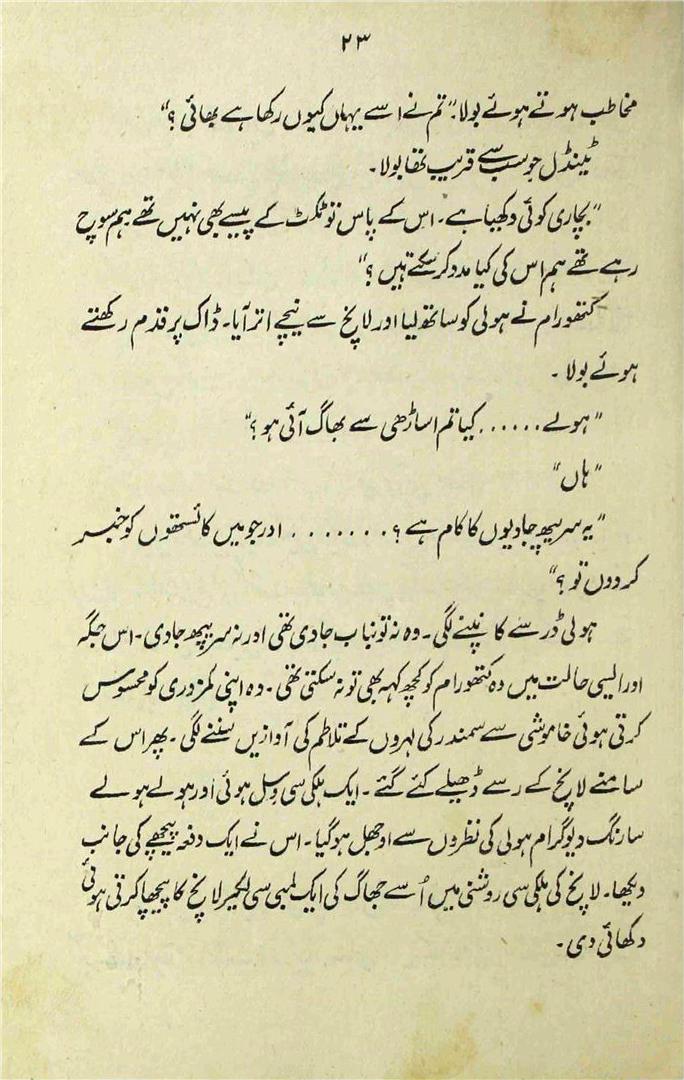 ۲۳
مخاطب ہوتے ہوئے بولا۔ "تم نے اسے یہاں کیوں رکھا ہے بھائی ؟"
ٹینڈل جو سب سے قریب تھا بولا۔
"بچاری کوئی دکھیا ہے۔ اس کے پاس تو ٹکٹ کے پیسے بھی نہیں تھے ہم سوچ
رہے تھے ہم اس کی کیا مدد کر سکتے ہیں ؟"
کتھورام نے ہولی کو ساتھ لیا اور لانچ سے نیچے اتر آیا۔ ڈاک پر قدم رکھتے
ہوئے بولا ۔
"ہولے ...... کیا تم اساڑھی سے بھاگ آئی ہو ؟"
"ہاں"
"یہ سریپھ جادیوں کا کام ہے ؟ ....... اور جو میں کائستھوں کو خبر
کر دوں تو ؟"
ہولی ڈر سے کانپنے لگی۔ وہ نہ تو نباب جادی تھی اور نہ سریپھ جادی۔ اس جگہ
اور ایسی حالت میں وہ کتھورام کو کچھ کہہ بھی تو نہ سکتی تھی۔ وہ اپنی کمزوری کو محسوس
کرتی ہوئی خاموشی سے سمندر کی لہروں کے تلاطم کی آوازیں سننے لگی۔ پھر اس کے
سامنے لانچ کے رسے ڈھیلے کئے گئے۔ ایک ہلکی سی وسل ہوئی اور ہولے ہولے
سارنگ دیوگرام ہولی کی نظروں سے اوجھل ہو گیا۔ اس نے ایک دفعہ پیچھے کی جانب
دیکھا۔ لانچ کی ہلکی سی روشنی میں اُسے جھاگ کی ایک لمبی سی لکیر لانچ کا پیچھا کرتی ہوئی
دکھائی دی۔